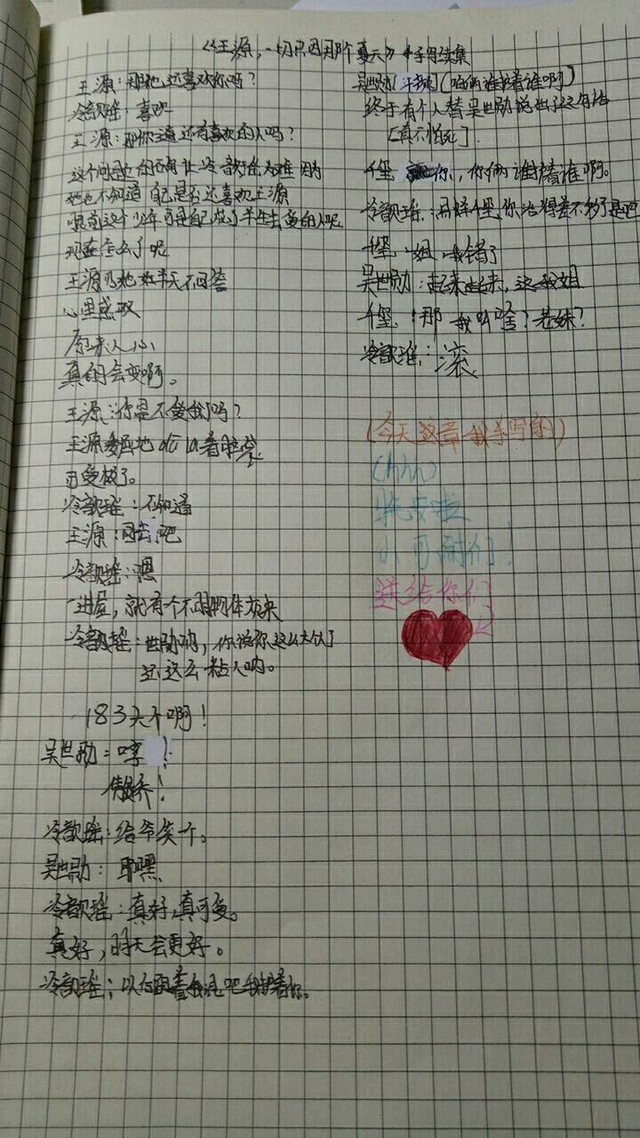 《王源,一切只因那个夏天》手写续集
王源：那她还喜欢你吗？
冷歆瑶：喜欢
王源：那你还有喜欢的人吗？
这个问题的确有让冷歆瑶为难 因为
她也不知道 自己是否还喜欢王源
眼前这个少年可是自己花了半生去爱的人呢
现在怎么了呢
王源见她好半天不回答
心里感叹
原来人心
真的会变啊。
王源：你是不爱我了吗？
王源委屈地
可爱极了。
冷歆瑶：不知道
王源：回去吧
冷歆瑶：嗯
一进屋，就有个不明物体扑来
冷歆瑶：世勋呐，你说你这么大个了
还这么粘人呐。
183大个啊！
吴世勋：哼！
傲娇！
冷歆瑶：给爷笑个。
吴世勋：耶嘿
冷歆瑶：真好，真可爱。
真好，明天会更好。
冷歆瑶：以后跟着我混吧我护着你。
吴世勋[千玺](咱俩谁护着谁啊)
终于有个人替吴世勋说出了这句话
[真不怕死]
千玺：你，你俩谁护着谁啊。
冷歆瑶：易烊千玺，你活得差不多了是吧
千玺：姐，我错了
吴世勋：起来起来，这我姐
千玺：那我叫啥？老妹？
冷歆瑶：滚
(今天这章我手写的)
(hhh)
晚安啦
小可耐们！
送给你们